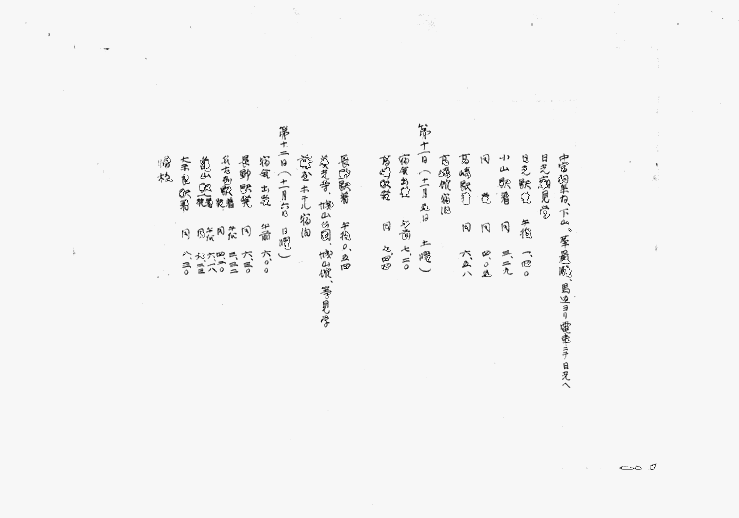 中宮祠ヲ下山、華厳滝、馬返ヨリ電車ニテ日光ヘ
日光見学
日光駅発 午後 一、四〇
小山駅着 同 三、二九
同 発 同 四、〇五
高崎駅着 同 六、五八
高崎館宿泊
第十一日(十一月五日 土曜)
宿舎出発 午前 七、二〇
高崎駅発 同 七、四四
長野駅着 午後 〇、五四
善光寺、城山公園、城山館、等見学
ホテル宿泊
第十二日(十一月六日 日曜)
宿舎出発 午前 六、〇〇
長野駅発 同 六、三〇
名古屋駅着 午後 三、三二
発 同 四、二〇
駅着 午後 六、一八
発 同
駅着 同 八、三〇
帰校